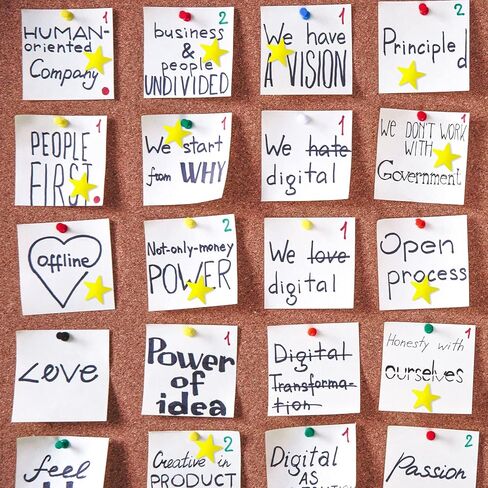 1
HUMAN-
oriented
Company
2
business
&
people
UNDIVIDED
1
We have
A VISION
2
Principled
1
PEOPLE
FIRST
1
We start
from WHY
1
We hate
digital
1
We DON'T WORK
WITH
Government
offline
2
Not-only-money
POWER
1
We love
digital
2
Open
process
Love
1
Power
of
idea
Digital
Transforma-
tion
1
Honesty with
ourselves
feel
2
Creative in
PRODUCT
1
Digital
AS
2
Passion